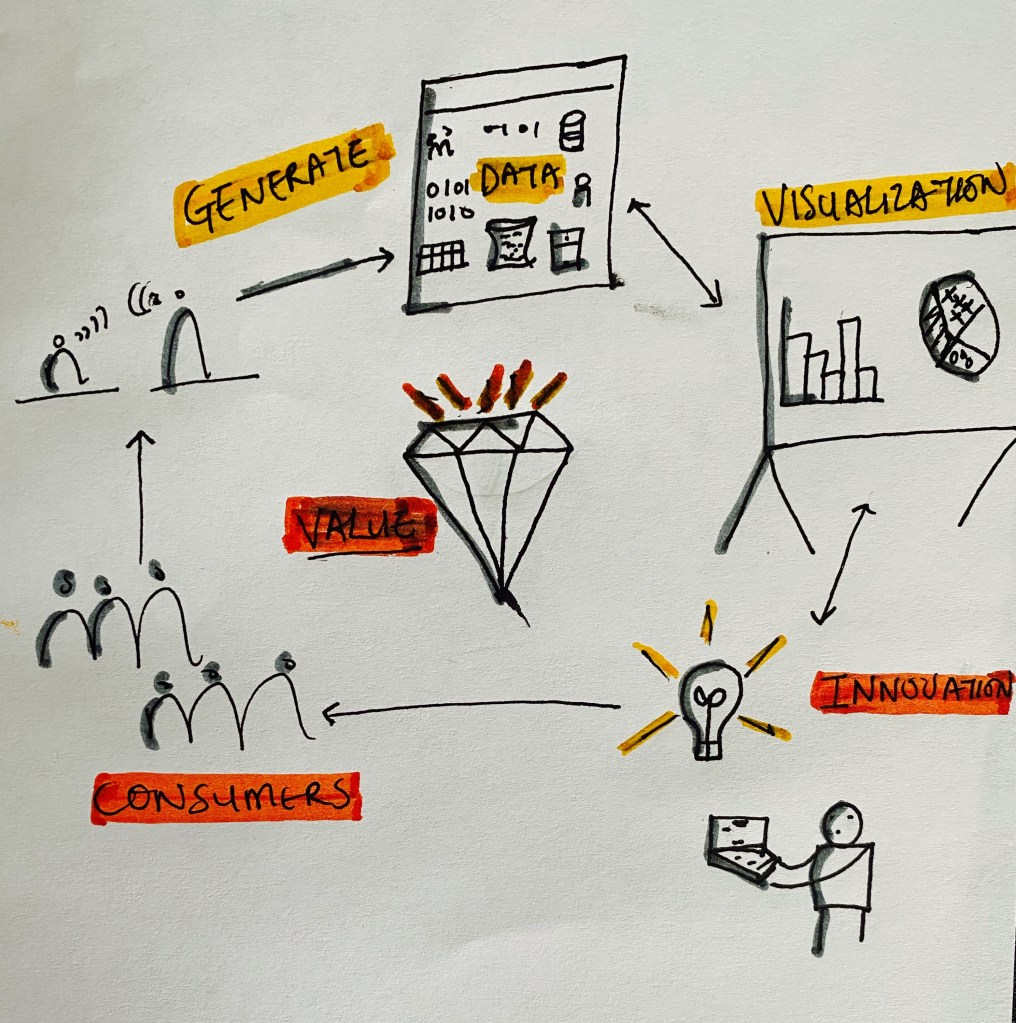 GENERATE
0101
DATA
0101
1010
VISUALIZATION
0%
VALUE
INNOVATION
CONSUMERS